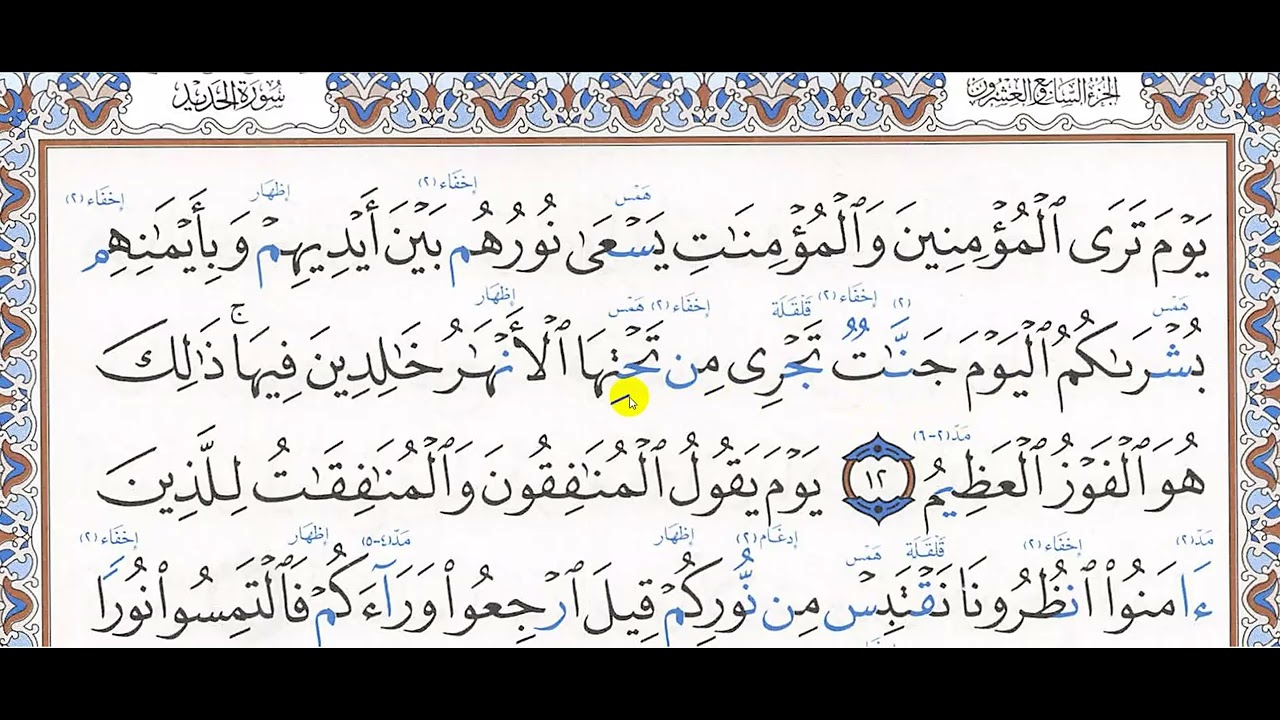 الجزء السابع والعشرون سورة الحديد
إخفاء (٢) همس إخفاء (٢) إظهار
يَوْمَ تَرَى ٱلْمُؤْمِنِينَ وَٱلْمُؤْمِنَٰتِ يَسْعَىٰ نُورُهُم بَيْنَ أَيْدِيهِمْ وَبِأَيْمَٰنِهِم
همس (٢) إخفاء (٢) قلقلة إخفاء (٢) همس إظهار
بُشْرَىٰكُمُ ٱلْيَوْمَ جَنَّٰتٌ تَجْرِى مِن تَحْتِهَا ٱلْأَنْهَٰرُ خَٰلِدِينَ فِيهَا ۚ ذَٰلِكَ
مد (٢-٦)
هُوَ ٱلْفَوْزُ ٱلْعَظِيمُ ١٢ يَوْمَ يَقُولُ ٱلْمُنَٰفِقُونَ وَٱلْمُنَٰفِقَٰتُ لِلَّذِينَ
مد (٢) إخفاء (٢) قلقلة همس إدغام (٢) إظهار مد (٤-٥) إظهار إخفاء (٢)
ءَامَنُوا۟ ٱنظُرُونَا نَقْتَبِسْ مِن نُّورِكُمْ قِيلَ ٱرْجِعُوا۟ وَرَآءَكُمْ فَٱلْتَمِسُوا۟ نُورًا